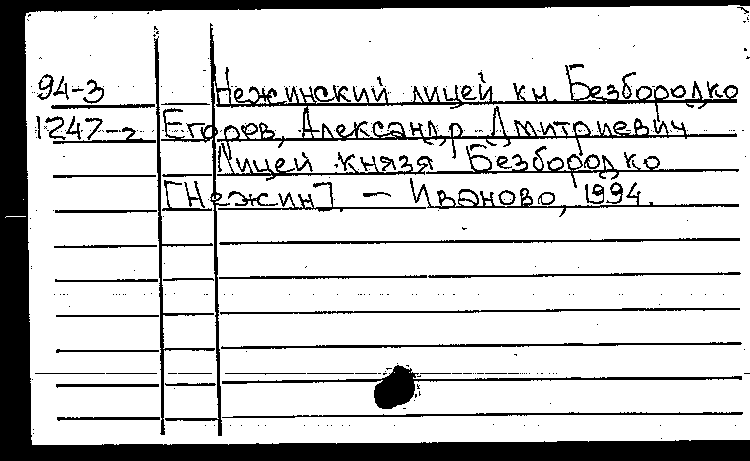 94-3 Нежинский лицей кн. Безбородко
1247-2 Егоров, Александр Дмитриевич
Лицей князя Безбородко
[Нежин]. — Иваново, 1994.